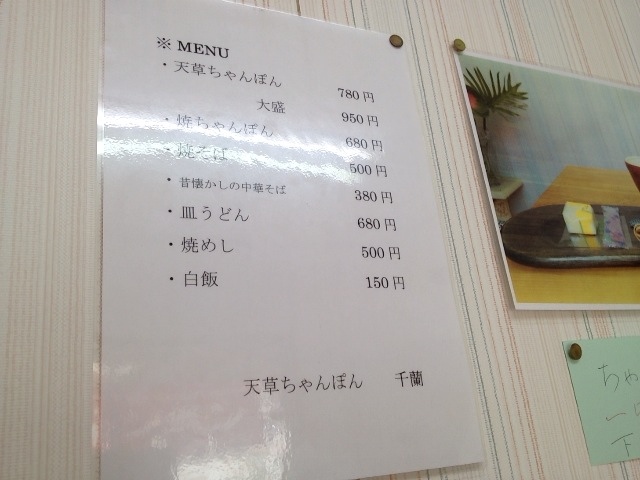 ※ MENU
・天草ちゃんぽん 780 円
大盛 950 円
・焼ちゃんぽん 680 円
・焼そば 500 円
・昔懐かしの中華そば 380 円
・皿うどん 680 円
・焼めし 500 円
・白飯 150 円
天草ちゃんぽん 千蘭
ちゃ
一
下